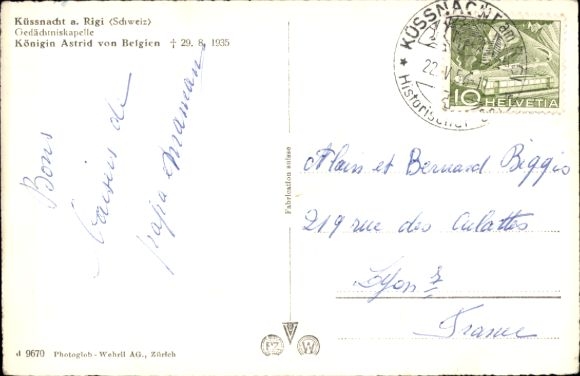 Küssnacht a. Rigi (Schweiz)
Gedächtniskapelle
Königin Astrid von Belgien † 29. 8. 1935
Bons
baisers de
papa Maman
Fabrication suisse
KÜSSNACHT am
22. V.
Historischer
10 HELVETIA
Alain et Bernard Biggio
219 rue des Culattes
Lyon 7
France
J 9670 Photoglob - Wehrli AG., Zürich
PZ
W